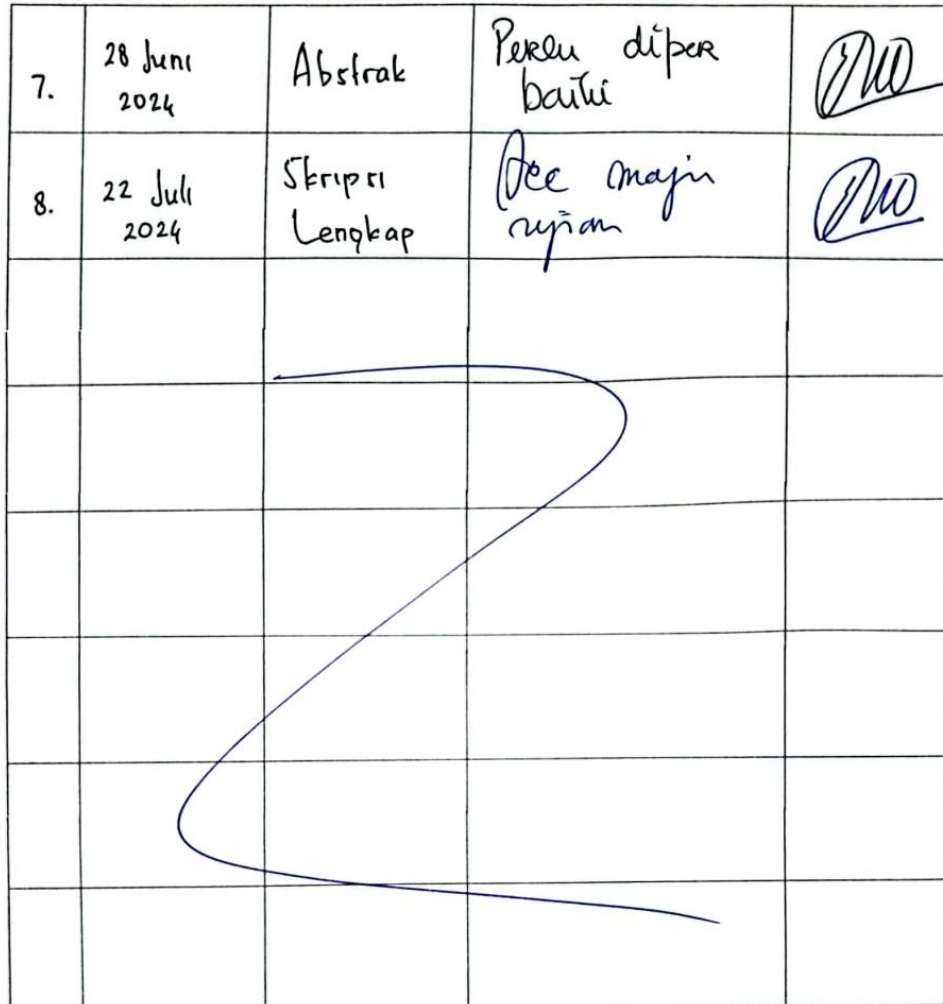 7.
28 Juni
2024
Abstrak
Perlu diper
baiki
8.
22 Juli
2024
Skripsi
Lengkap
Acc maju
ujian